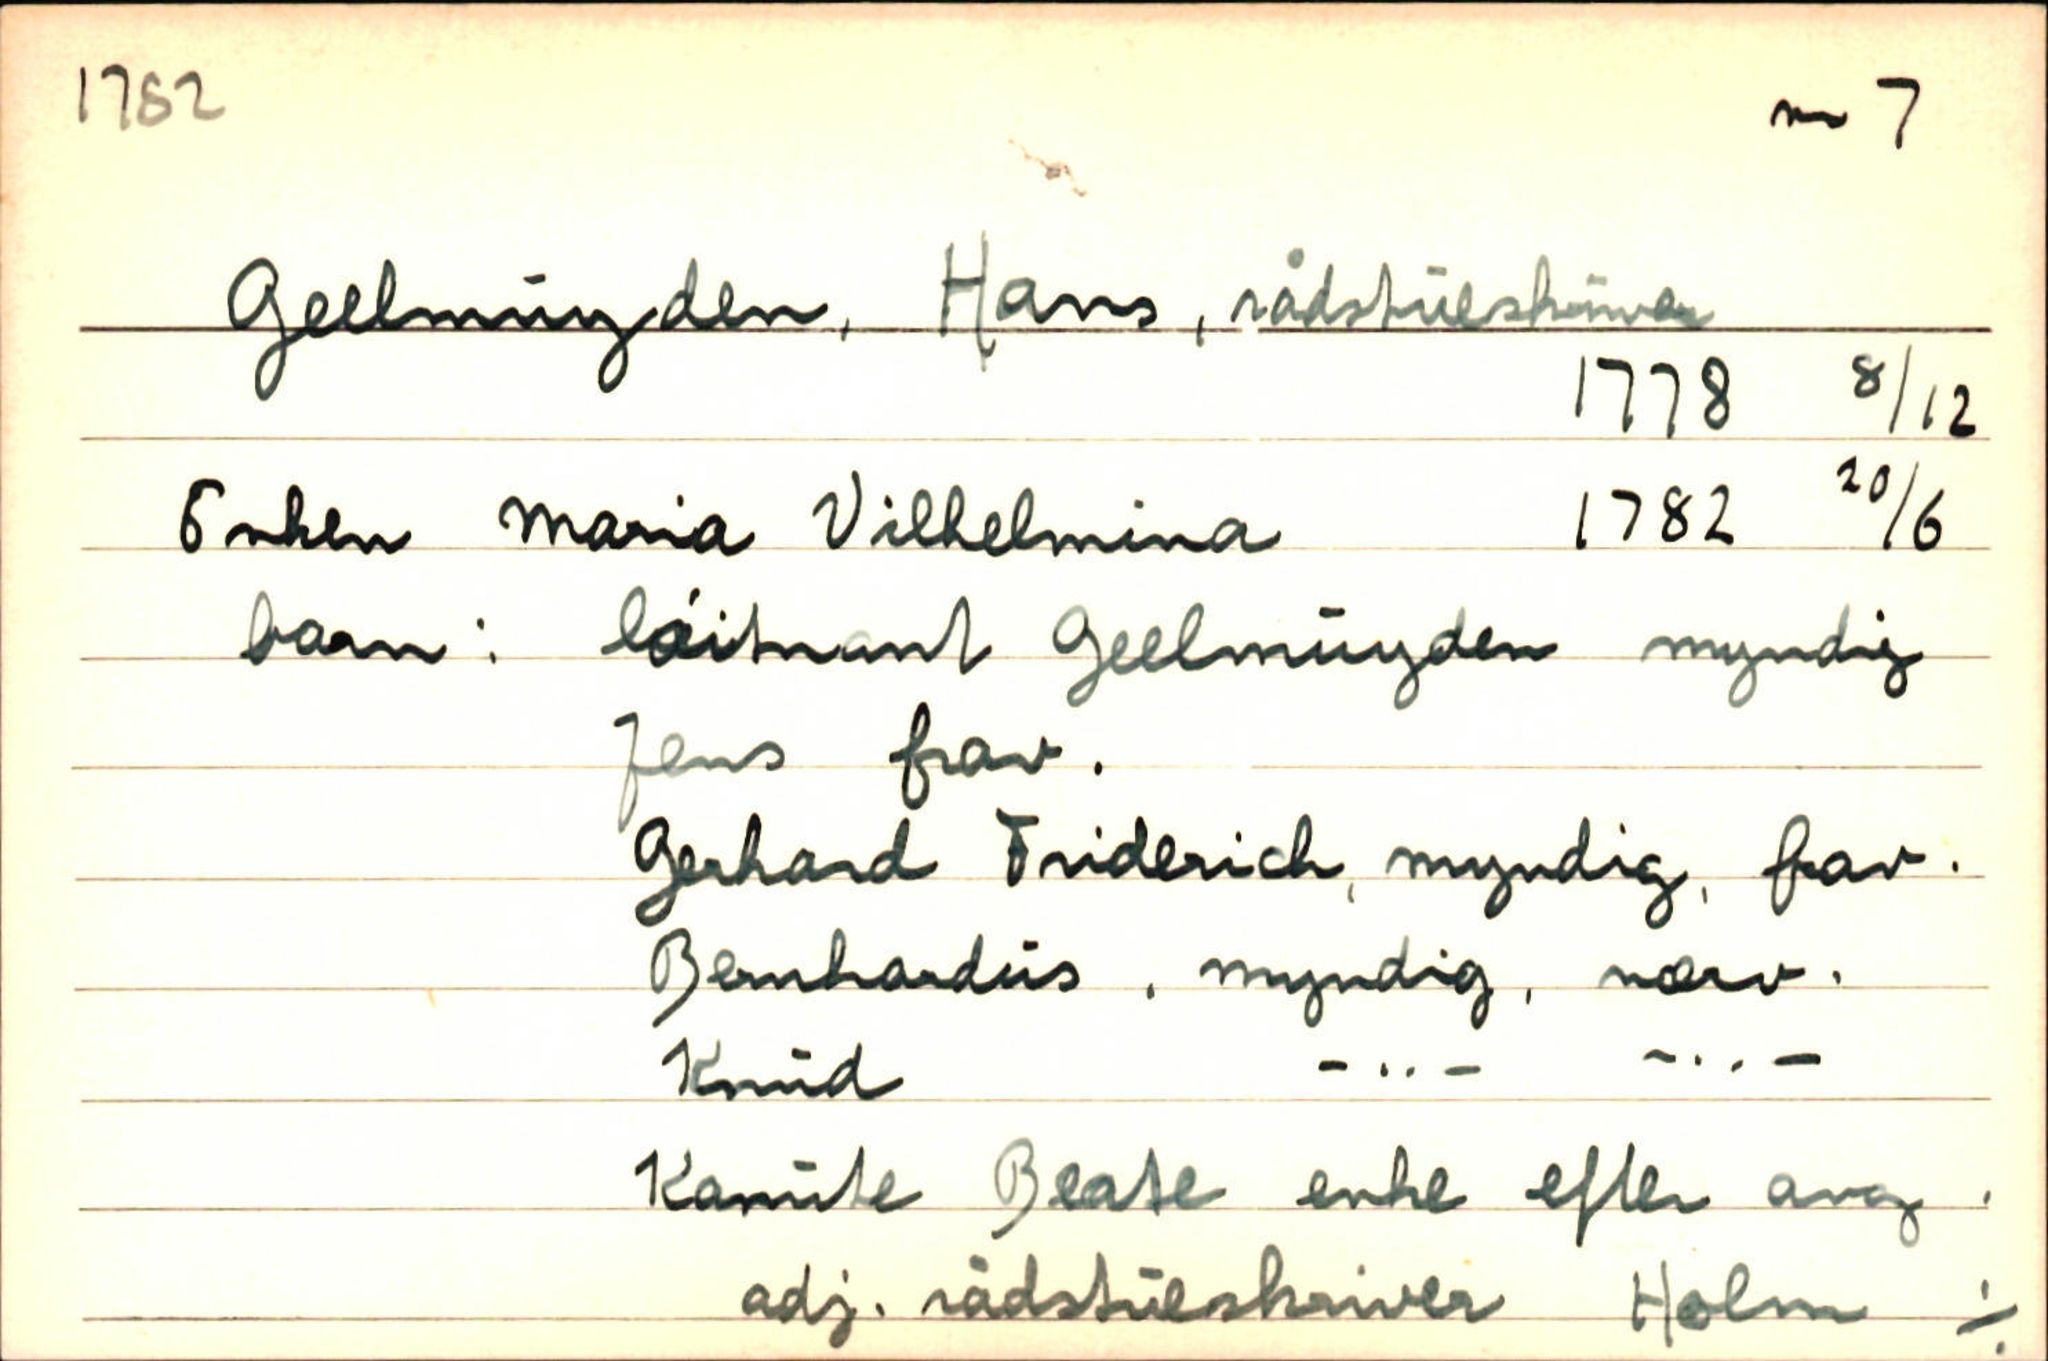 1782 nr 7
Geelmuyden, Hans, rådstueskriver
1778 8/12
Enken Maria Vilhelmina 1782 20/6
barn: løitnant Geelmuyden myndig
Jens frav.
Gerhard Friderich, myndig, frav.
Bernhardus, myndig, nærv.
Knud -..- -..-
Kanute Beate enke efter avg.
adj. rådstueskriver Holm ./.